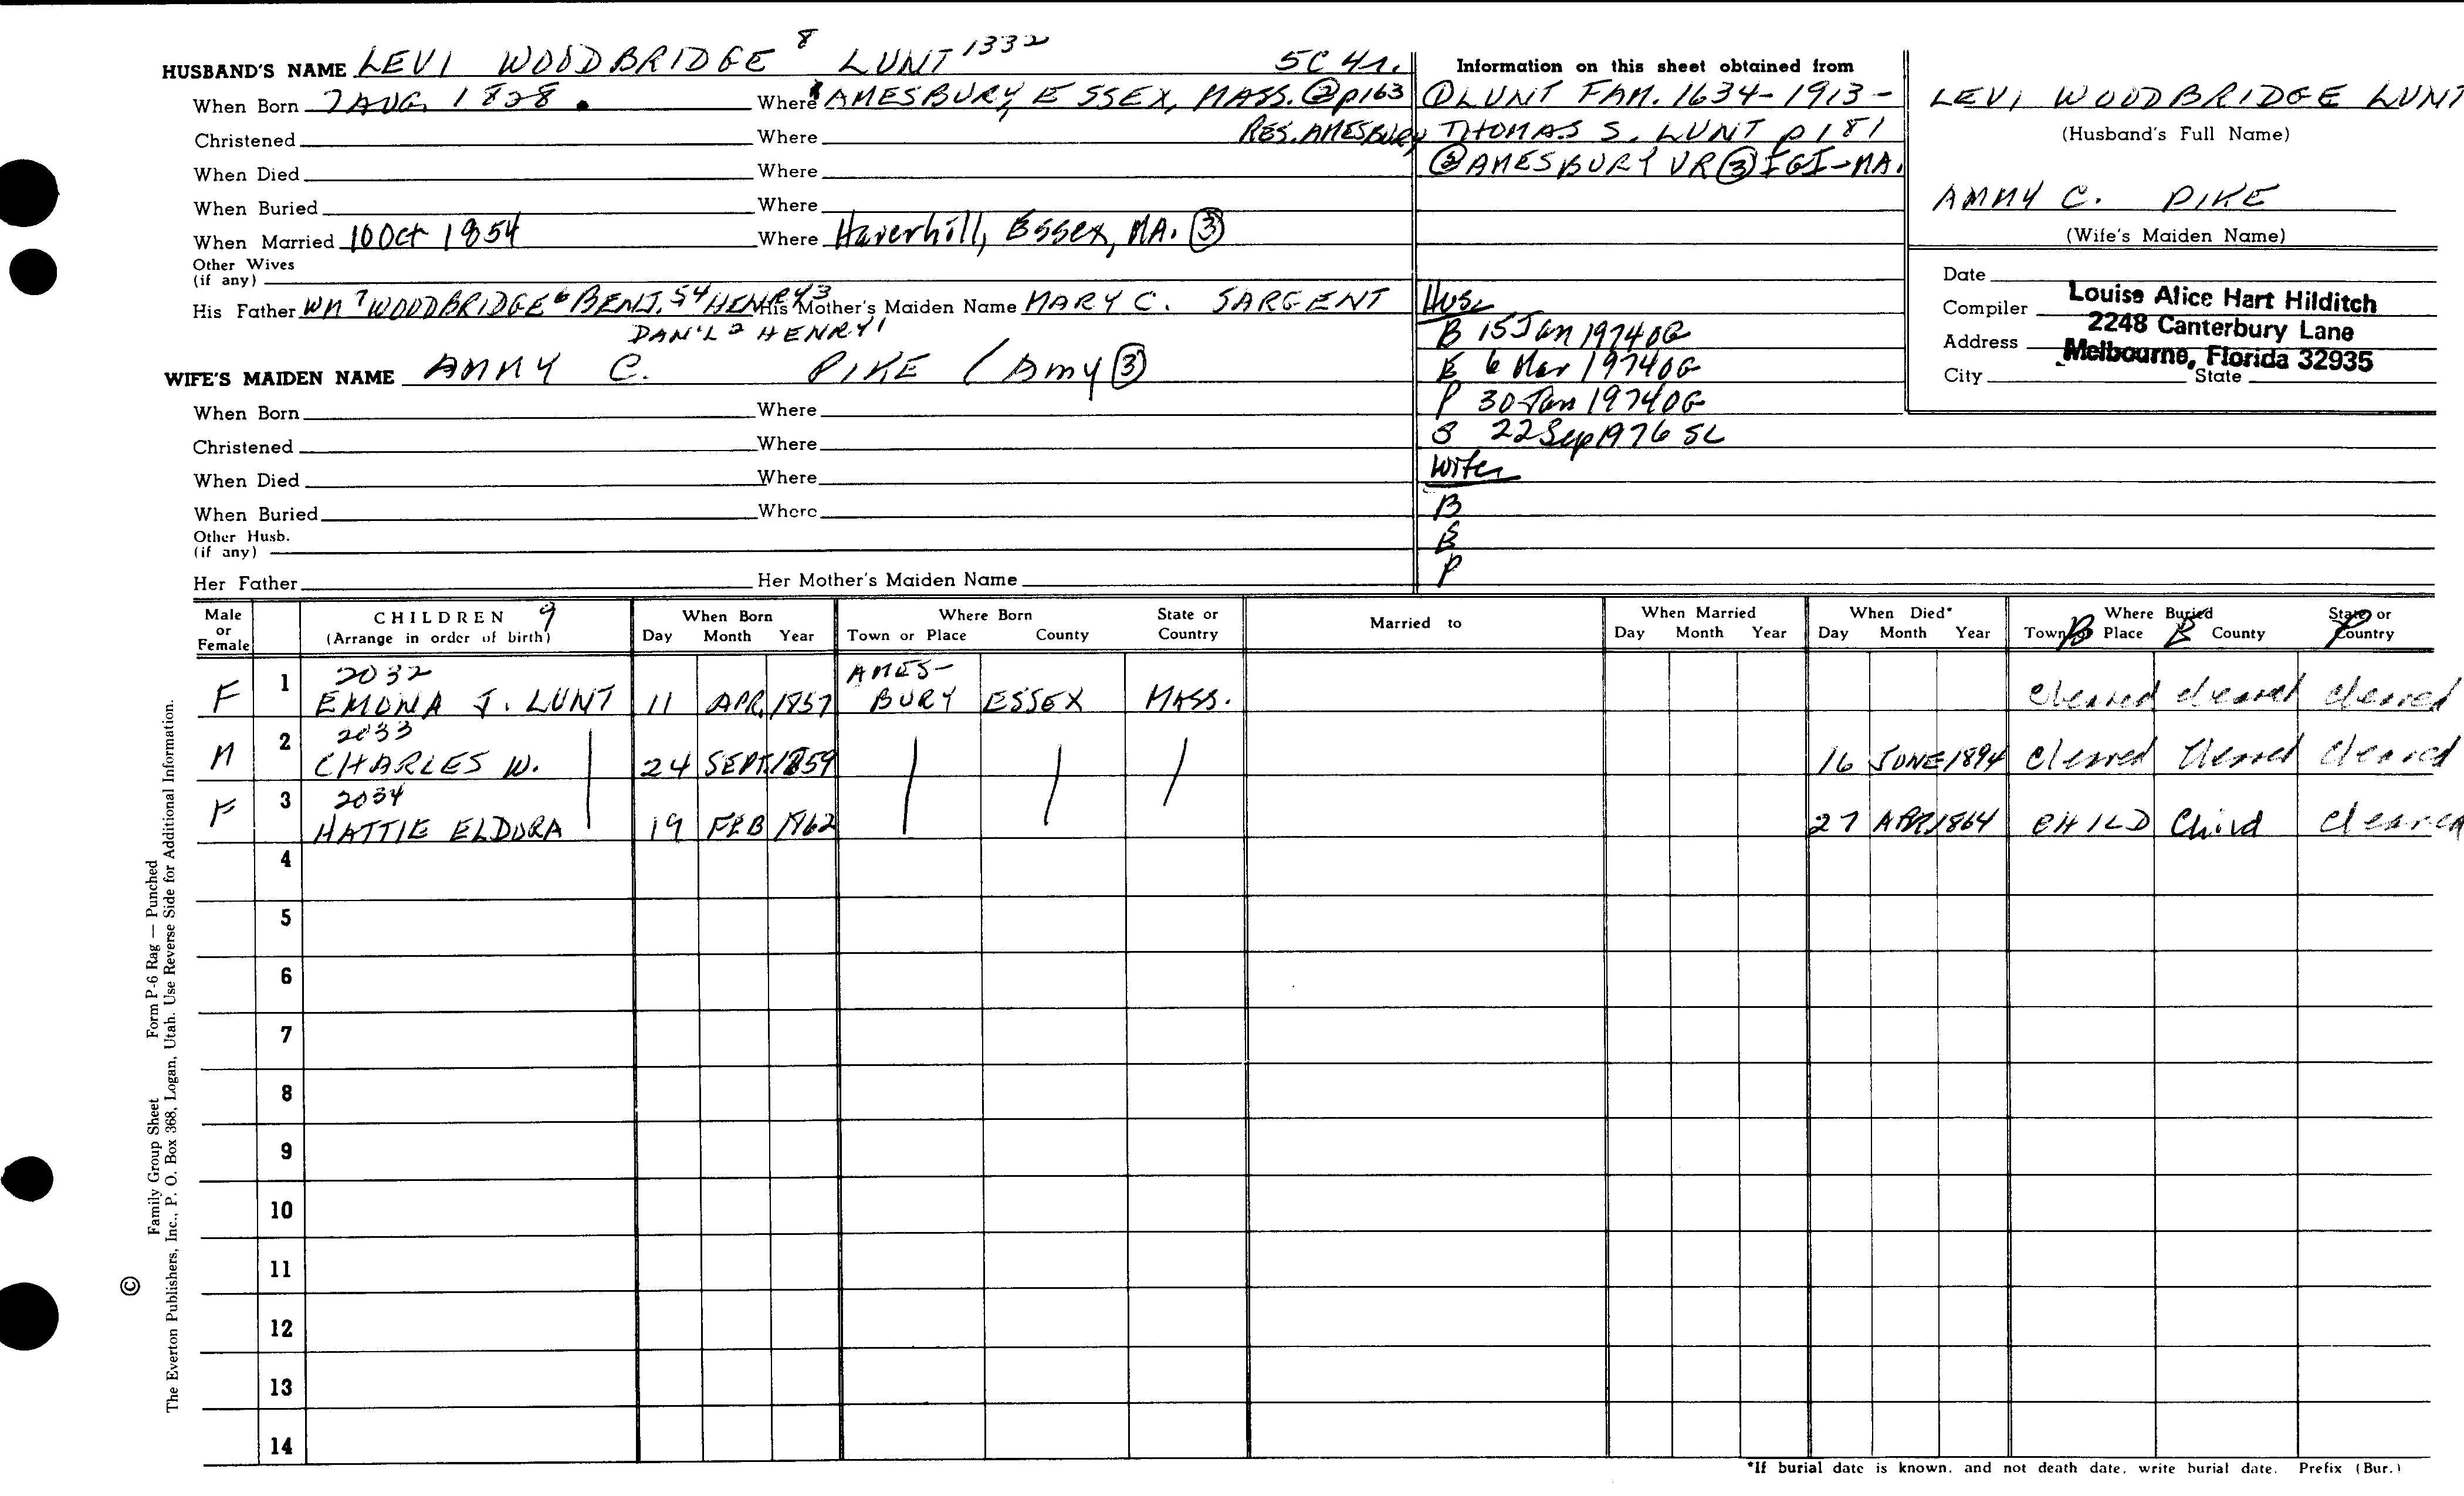 HUSBAND'S NAME LEVI WOODBRIDGE 8 LUNT 1332 5C 4r.
When Born 7 AUG. 1828. Where AMESBURY, ESSEX, MASS. ② p163
RES. AMESBURY
Christened Where
When Died Where
When Buried Where
When Married 10 Oct 1854 Where Haverhill, Essex, MA. ③
Other Wives
(if any)
His Father WM 7 WOODBRIDGE 6 BENJ. 5 4 HENRY 3 His Mother's Maiden Name MARY C. SARGENT
DAN'L 2 HENRY 1
WIFE'S MAIDEN NAME AMMY C. PIKE (Amy ③
When Born Where
Christened Where
When Died Where
When Buried Where
Other Husb.
(if any)
Her Father Her Mother's Maiden Name
Information on this sheet obtained from
① LUNT FAM. 1634-1913-
THOMAS S. LUNT p181
② AMESBURY VR ③ IGI-MA.
Husb
B 15 Jan 1974 OG
E 6 Mar 1974 OG
P 30 Jan 1974 OG
S 22 Sep 1976 SL
Wife
B
E
P
LEVI WOODBRIDGE LUNT
(Husband's Full Name)
AMMY C. PIKE
(Wife's Maiden Name)
Date
Compiler Louise Alice Hart Hilditch
Address 2248 Canterbury Lane
Melbourne, Florida 32935
City State
Male or Female CHILDREN 9 (Arrange in order of birth) When Born Day Month Year Where Born Town or Place County State or Country Married to When Married Day Month Year When Died* Day Month Year Where Buried Town or Place County State or Country B E P
F 1 2032 EMONA J. LUNT 11 APR. 1857 AMES-BURY ESSEX MASS. cleared cleared cleared
M 2 2033 CHARLES W. 24 SEPT. 1859 16 JUNE 1894 cleared cleared cleared
F 3 2034 HATTIE ELDORA 19 FEB 1862 27 APR. 1864 CHILD Child cleared
4
5
6
7
8
9
10
11
12
13
14
*If burial date is known, and not death date, write burial date. Prefix (Bur.)
© Family Group Sheet Form P-6 Rag — Punched
The Everton Publishers, Inc., P. O. Box 368, Logan, Utah. Use Reverse Side for Additional Information.